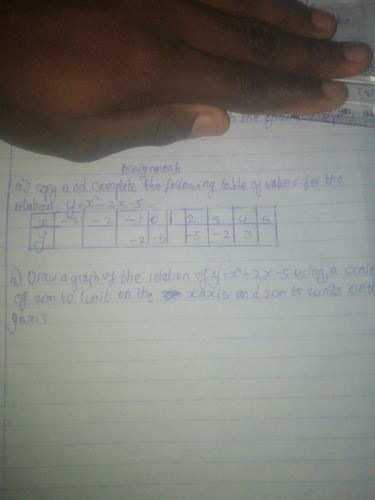 Assignment
a) Copy and complete the following table of values for the
relation y=x²-2x-5
x -3 -2 -1 0 1 2 3 4 5
y -2 -5 -5 -2 3
b) Draw a graph of the relation of y=x²-2x-5 using a scale
of 2cm to 1unit on the x axis and 2cm to 2units on the
y axis